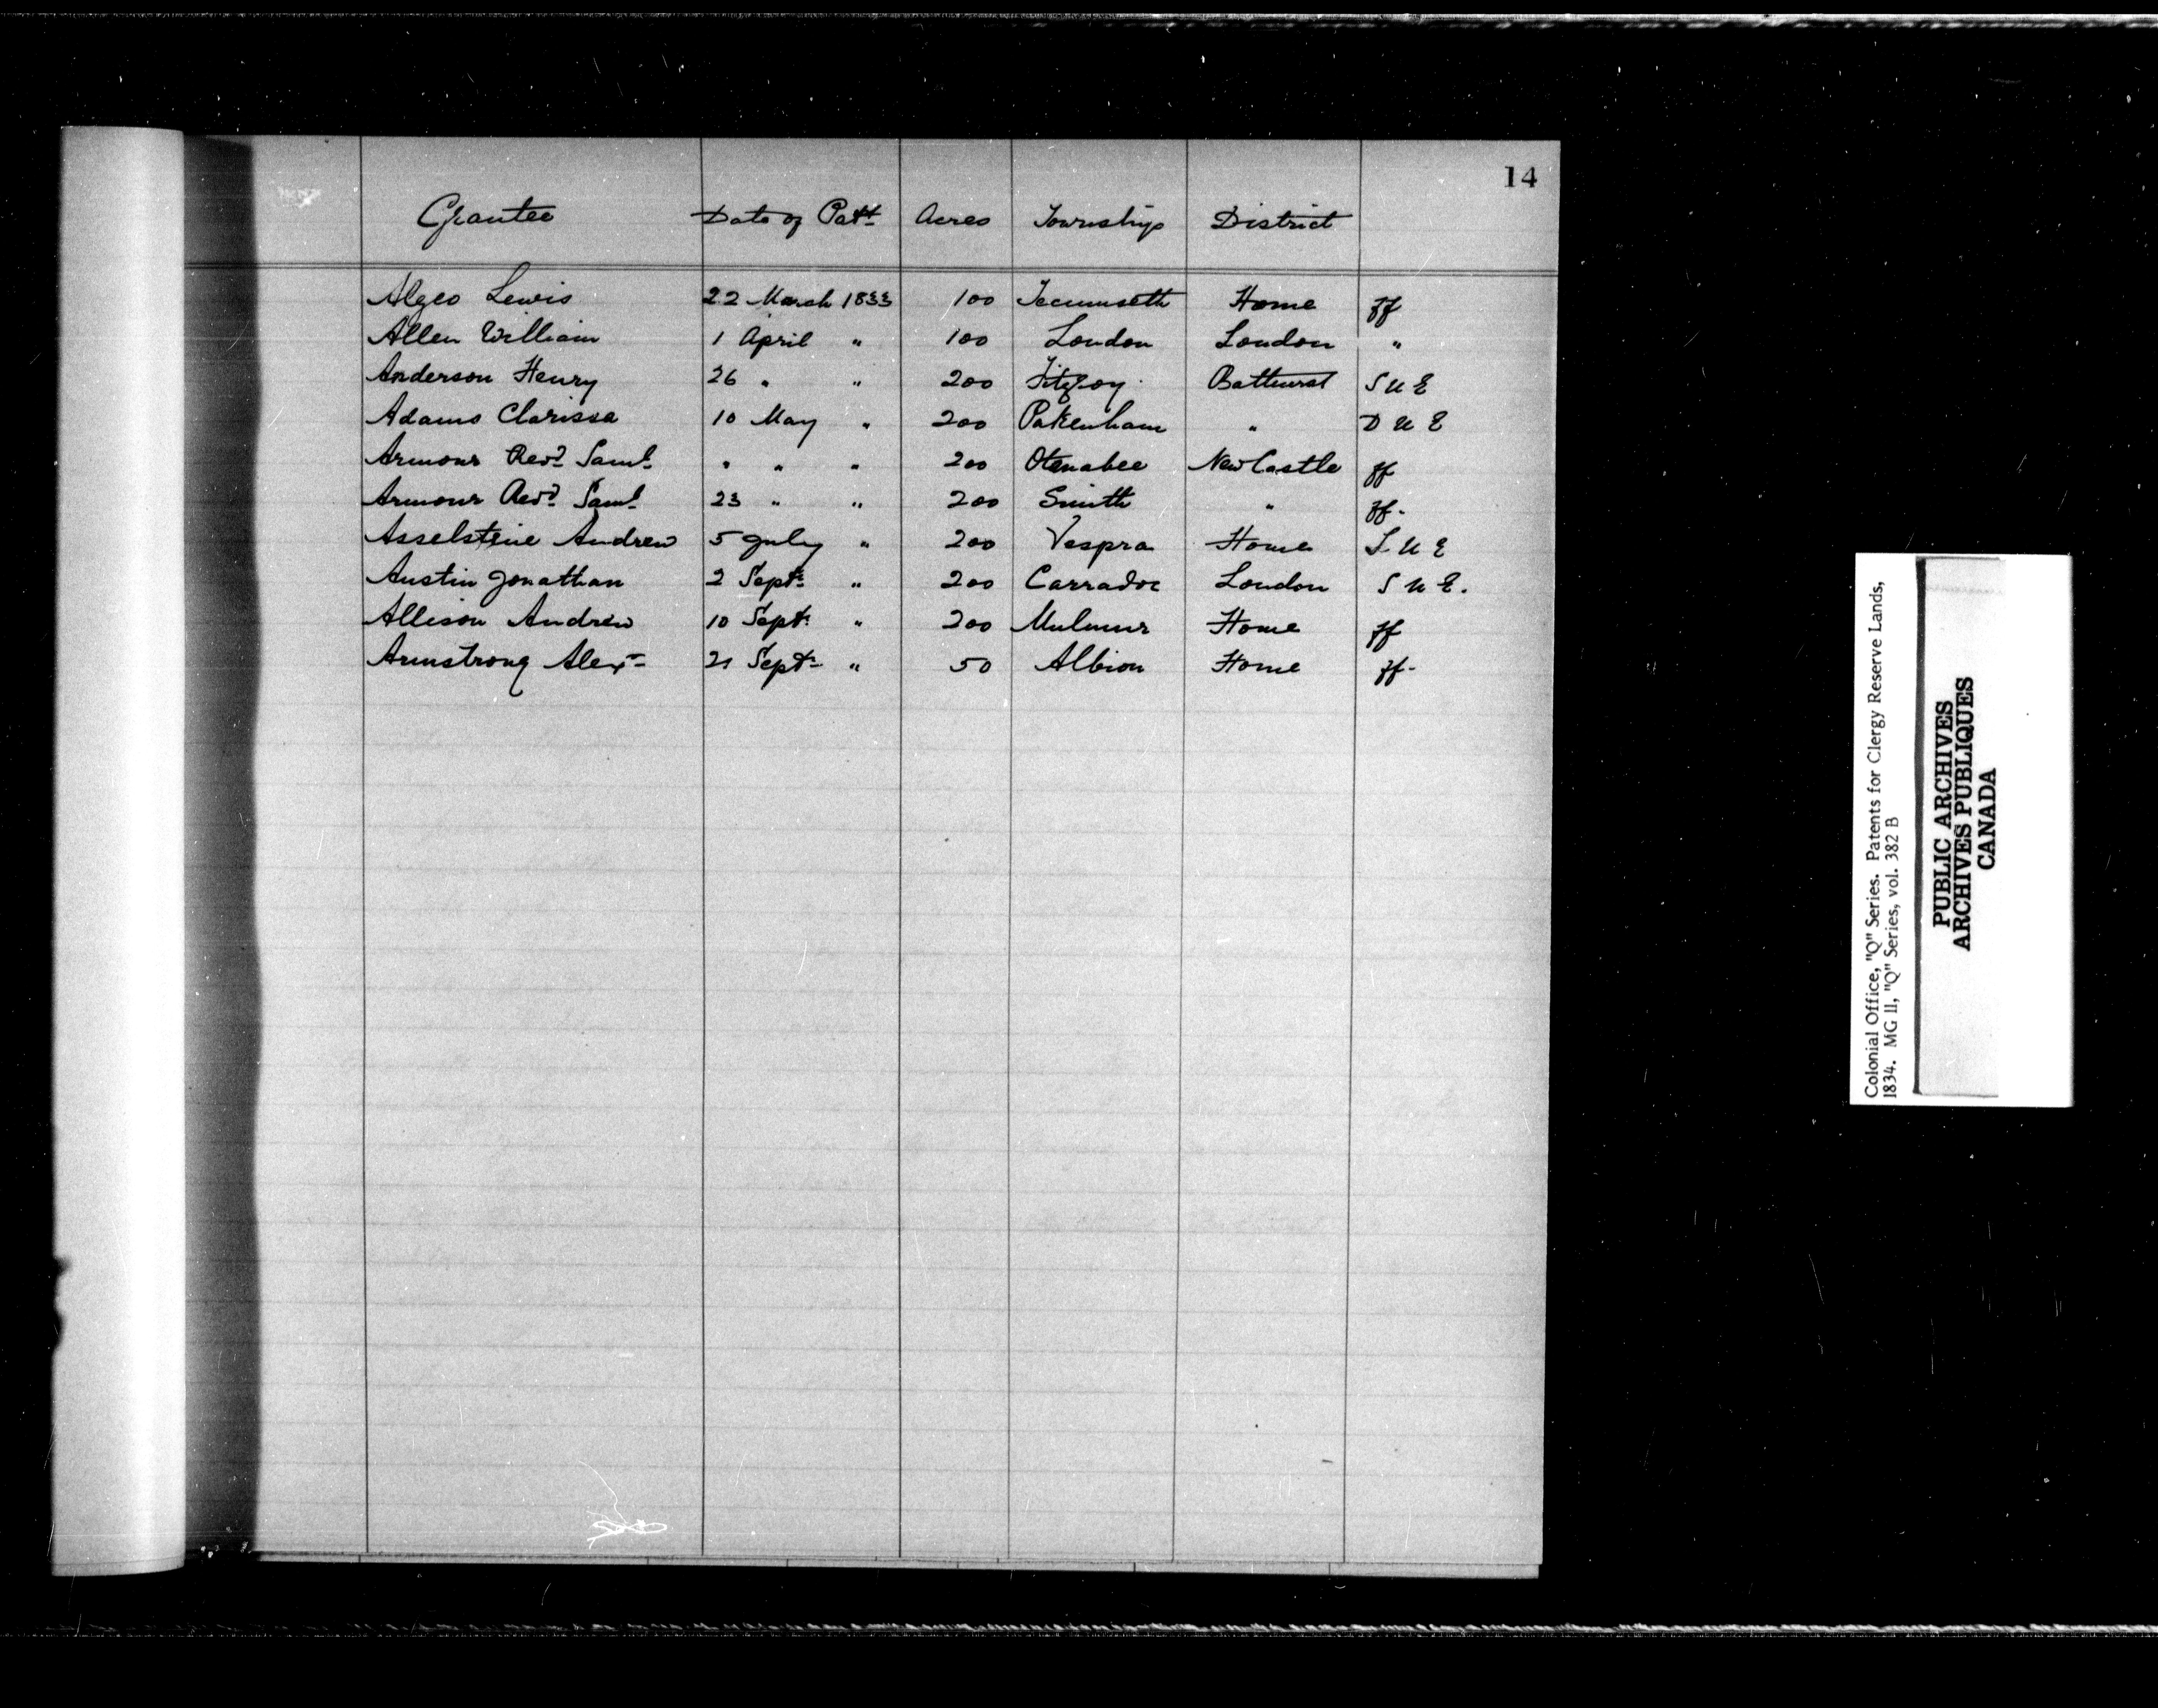 14
Grantee Date of Patt Acres Township District
Algeo Lewis 22 March 1833 100 Tecumseth Home ff
Allen William 1 April " 100 London London "
Anderson Henry 26 " " 200 Fitzroy Bathurst S U E
Adams Clarissa 10 May " 200 Pakenham " D U E
Armour Revd Saml " " " 200 Otonabee NewCastle ff
Armour Revd Saml 23 " " 200 Smith " ff-
Asselstine Andrew 5 July " 200 Vespra Home S U E
Austin Jonathan 2 Sept " 200 Carradoc London S U E.
Allison Andrew 10 Sept " 200 Mulmur Home ff
Armstrong Alexr 21 Sept " 50 Albion Home ff-
Colonial Office, "Q" Series. Patents for Clergy Reserve Lands,
1834. MG 11, "Q" Series, vol. 382 B
PUBLIC ARCHIVES
ARCHIVES PUBLIQUES
CANADA